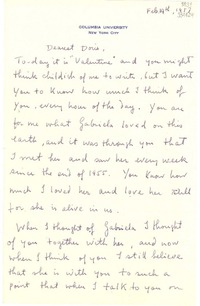 Feb 14th, 1957
COLUMBIA UNIVERSITY
NEW YORK CITY
Dearest Doris,
To-day it is "Valentine" and you might
think childish of me to write, but I want
you to know how much I think of
you, every hour of the day. You are
for me what Gabriela loved on this
earth, and it was through you that
I met her and saw her every week
since the end of 1955. You know how
much I loved her and love her still
for she is alive in us.
When I thought of Gabriela I thought
of you together with her, and now
when I think of you I still believe
that she is with you to such a
point that when I talk to you on